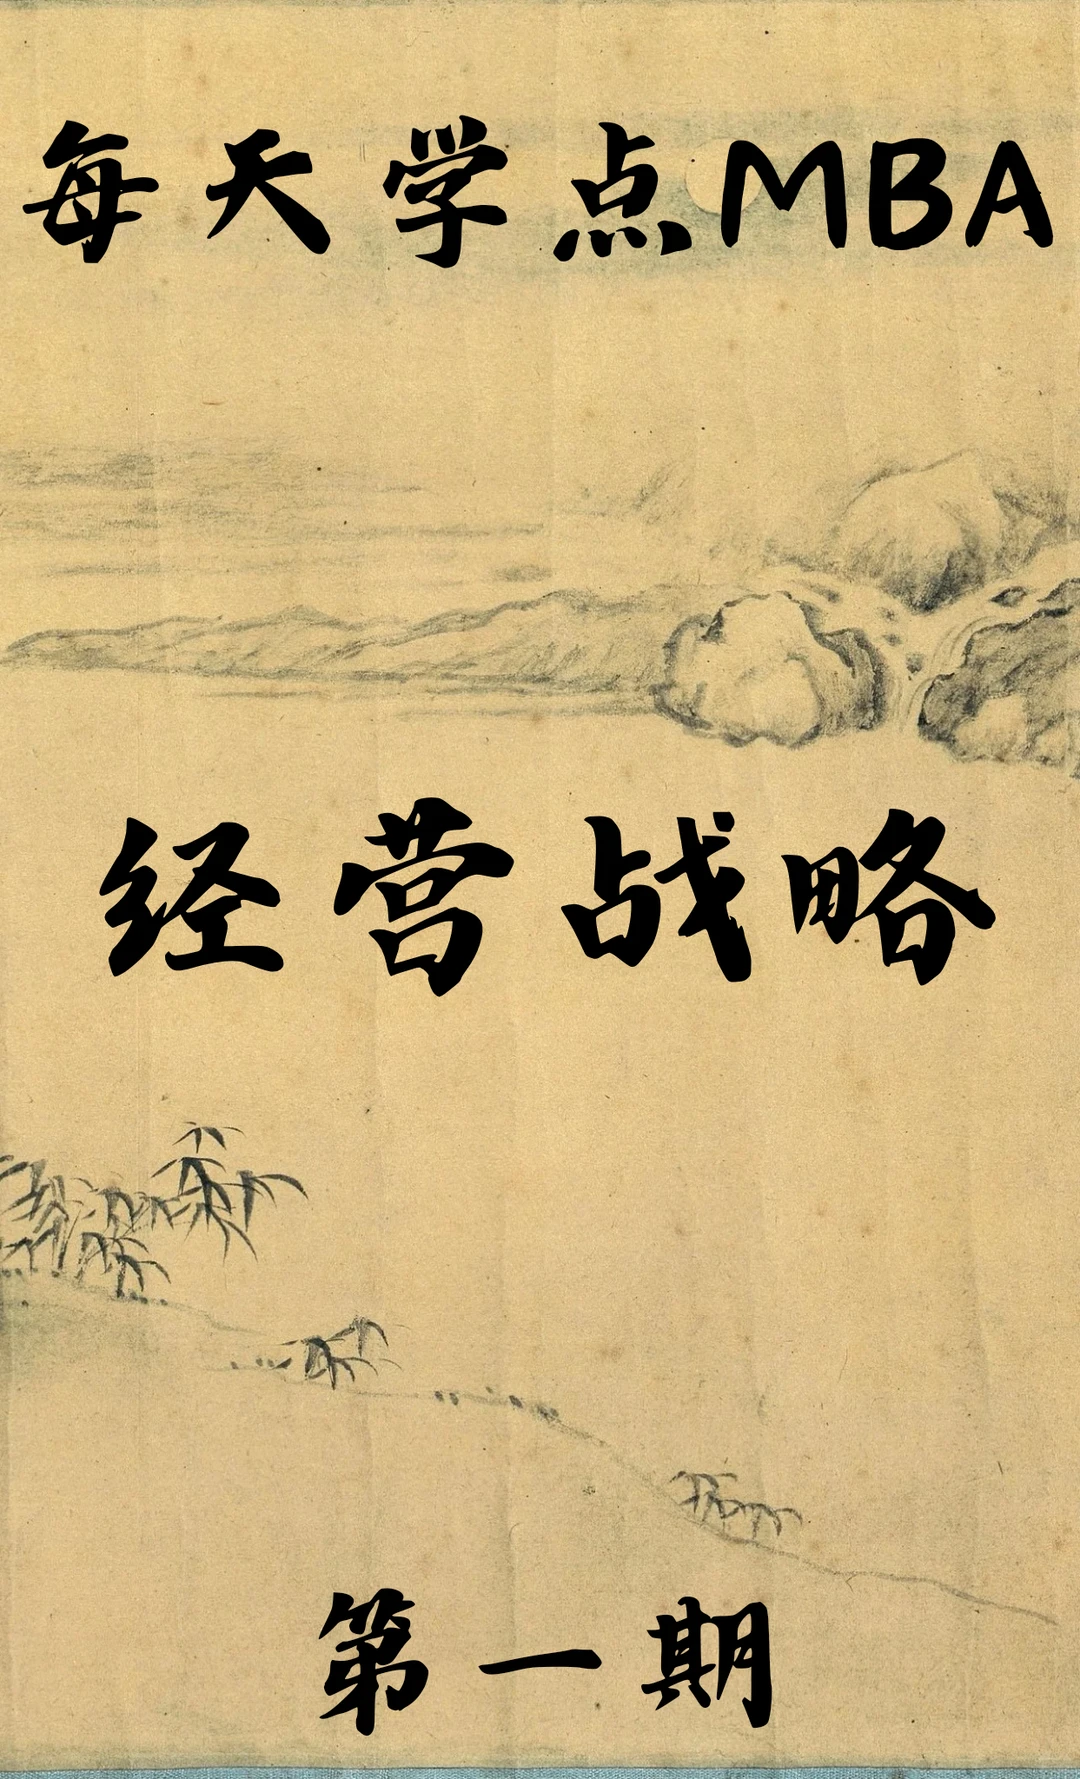 每天学点MBA
经营战略
第一期